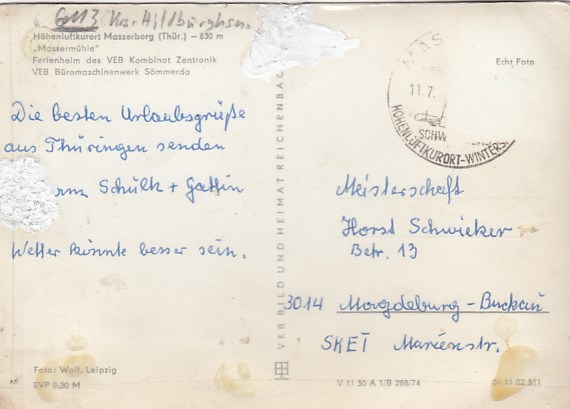 6113 Krs. Hildburghsn.
Höhenluftkurort Masserberg (Thür.) – 830 m
„Massermühle"
Ferienheim des VEB Kombinat Zentronik
VEB Büromaschinenwerk Sömmerda
Echt Foto
MAS
11.7.
SCHW
HÖHENLUFTKURORT-WINTERS
Die besten Urlaubsgrüße
aus Thüringen senden
Schültz + Gattin
Wetter könnte besser sein.
VEB BILD UND HEIMAT REICHENBACH
Meisterschaft
Horst Schwieker
Betr. 13
3014 Magdeburg-Buckau
SKET Marienstr.
Foto: Wolf, Leipzig
EVP 0,20 M
V 11 50 A 1/B 288/74